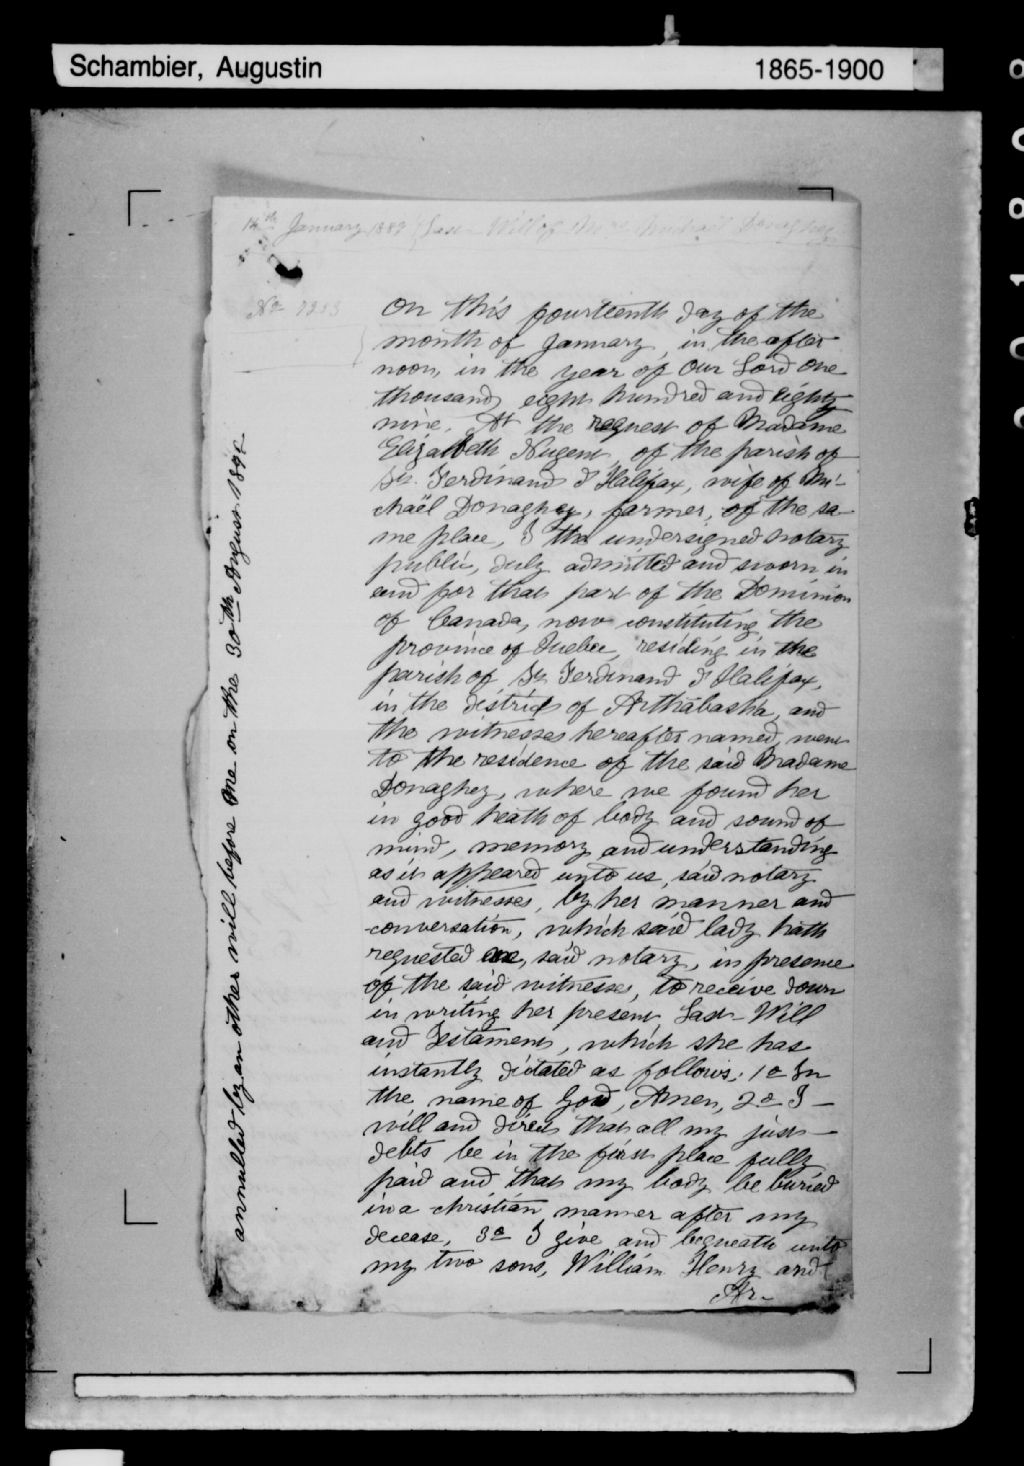 Schambier, Augustin 1865-1900
14th January 1889 Last Will of Mrs Michael Donaghey
No
On this fourteenth day of the
month of January, in the after
noon, in the year of our Lord one
thousand eight hundred and eighty
nine. At the request of Madame
Elizabeth Nugent, of the parish of
St. Ferdinand d'Halifax, wife of Mi-
chaël Donaghey, farmer, of the sa-
me place, I the undersigned notary
public, duly admitted and sworn in
and for that part of the Dominion
of Canada, now constituting the
province of Quebec, residing in the
parish of St Ferdinand d'Halifax,
in the district of Arthabaska, and
the witnesses hereafter named, went
to the residence of the said Madame
Donaghey, where we found her
in good heath of body and sound of
mind, memory and understanding
as it appeared unto us, said notary
and witnesses, by her manner and
conversation, which said lady hath
requested me, said notary, in presence
of the said witnesses, to receive down
in writing her present Last Will
and Testament, which she has
instantly dictated as follows: 1o In
the name of God, Amen, 2o I
will and direct that all my just
debts be in the first place fully
paid and that my body be buried
in a christian manner after my
decease, 3o I give and bequeath unto
my two sons, William Henry and
Ar-
annulled by an other will before me on the 30th August 189